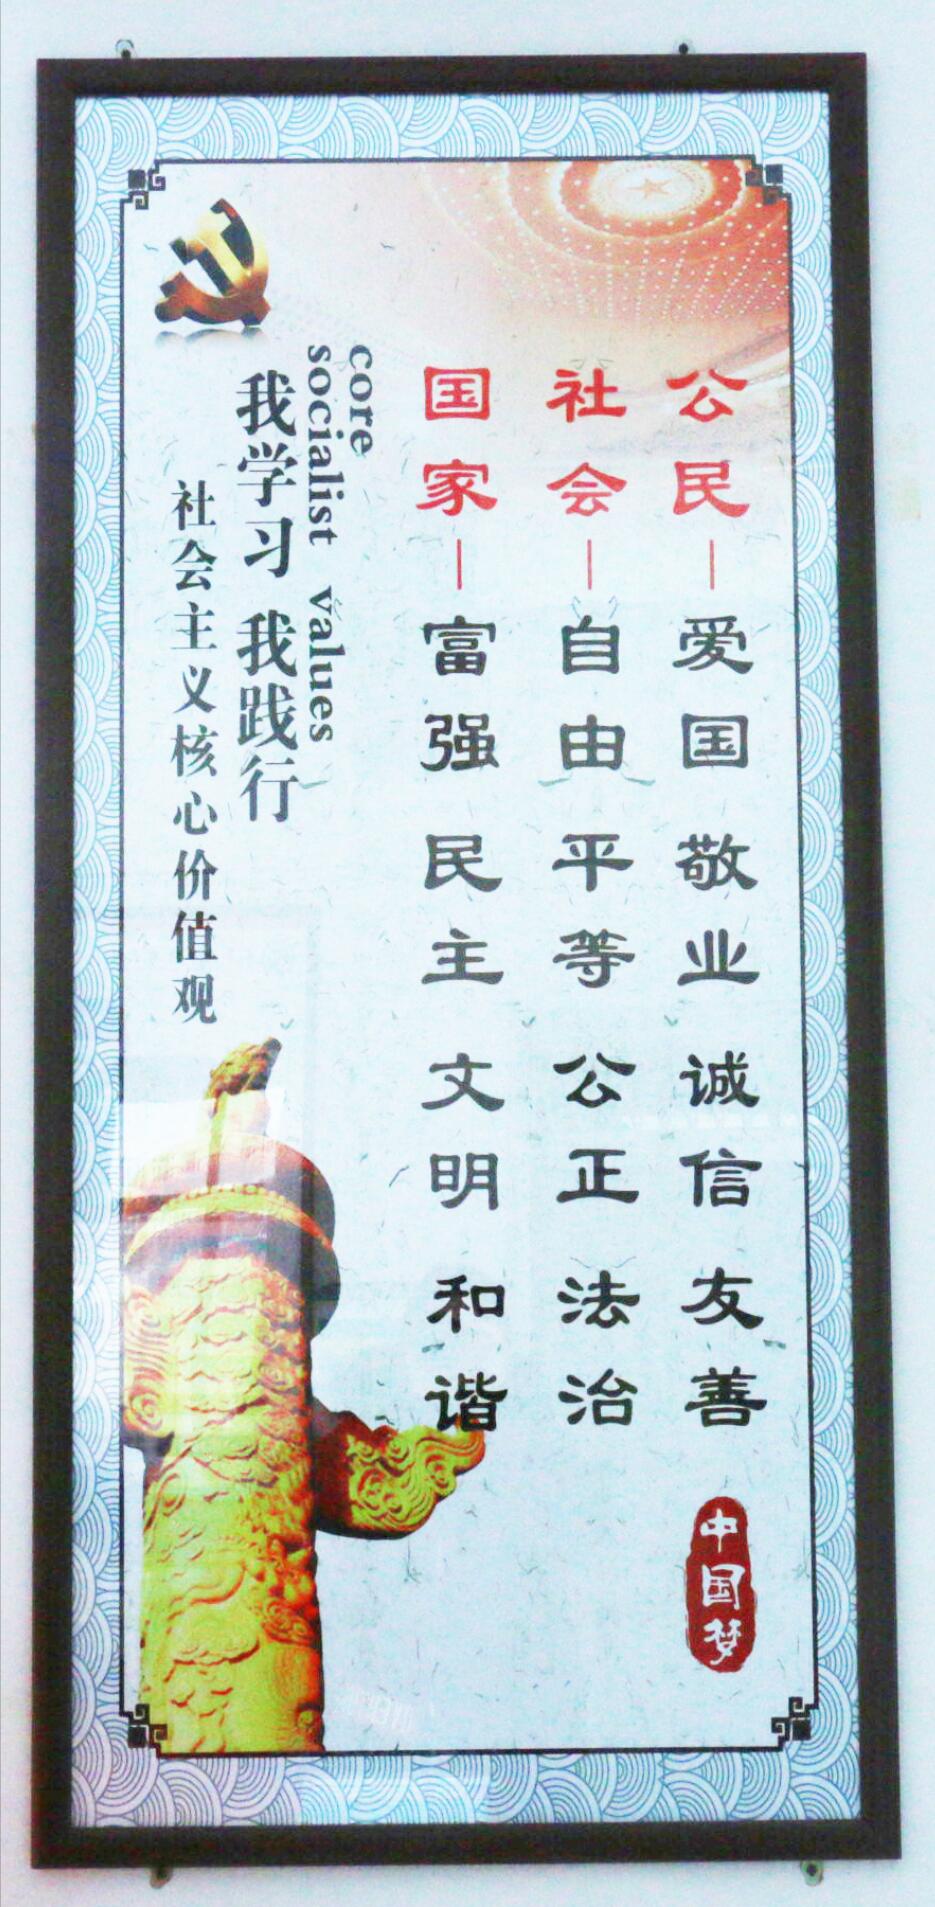 社会主义核心价值观
我学习 我践行
core
socialist values
国家—富强 民主 文明 和谐
社会—自由 平等 公正 法治
公民—爱国 敬业 诚信 友善
中国梦